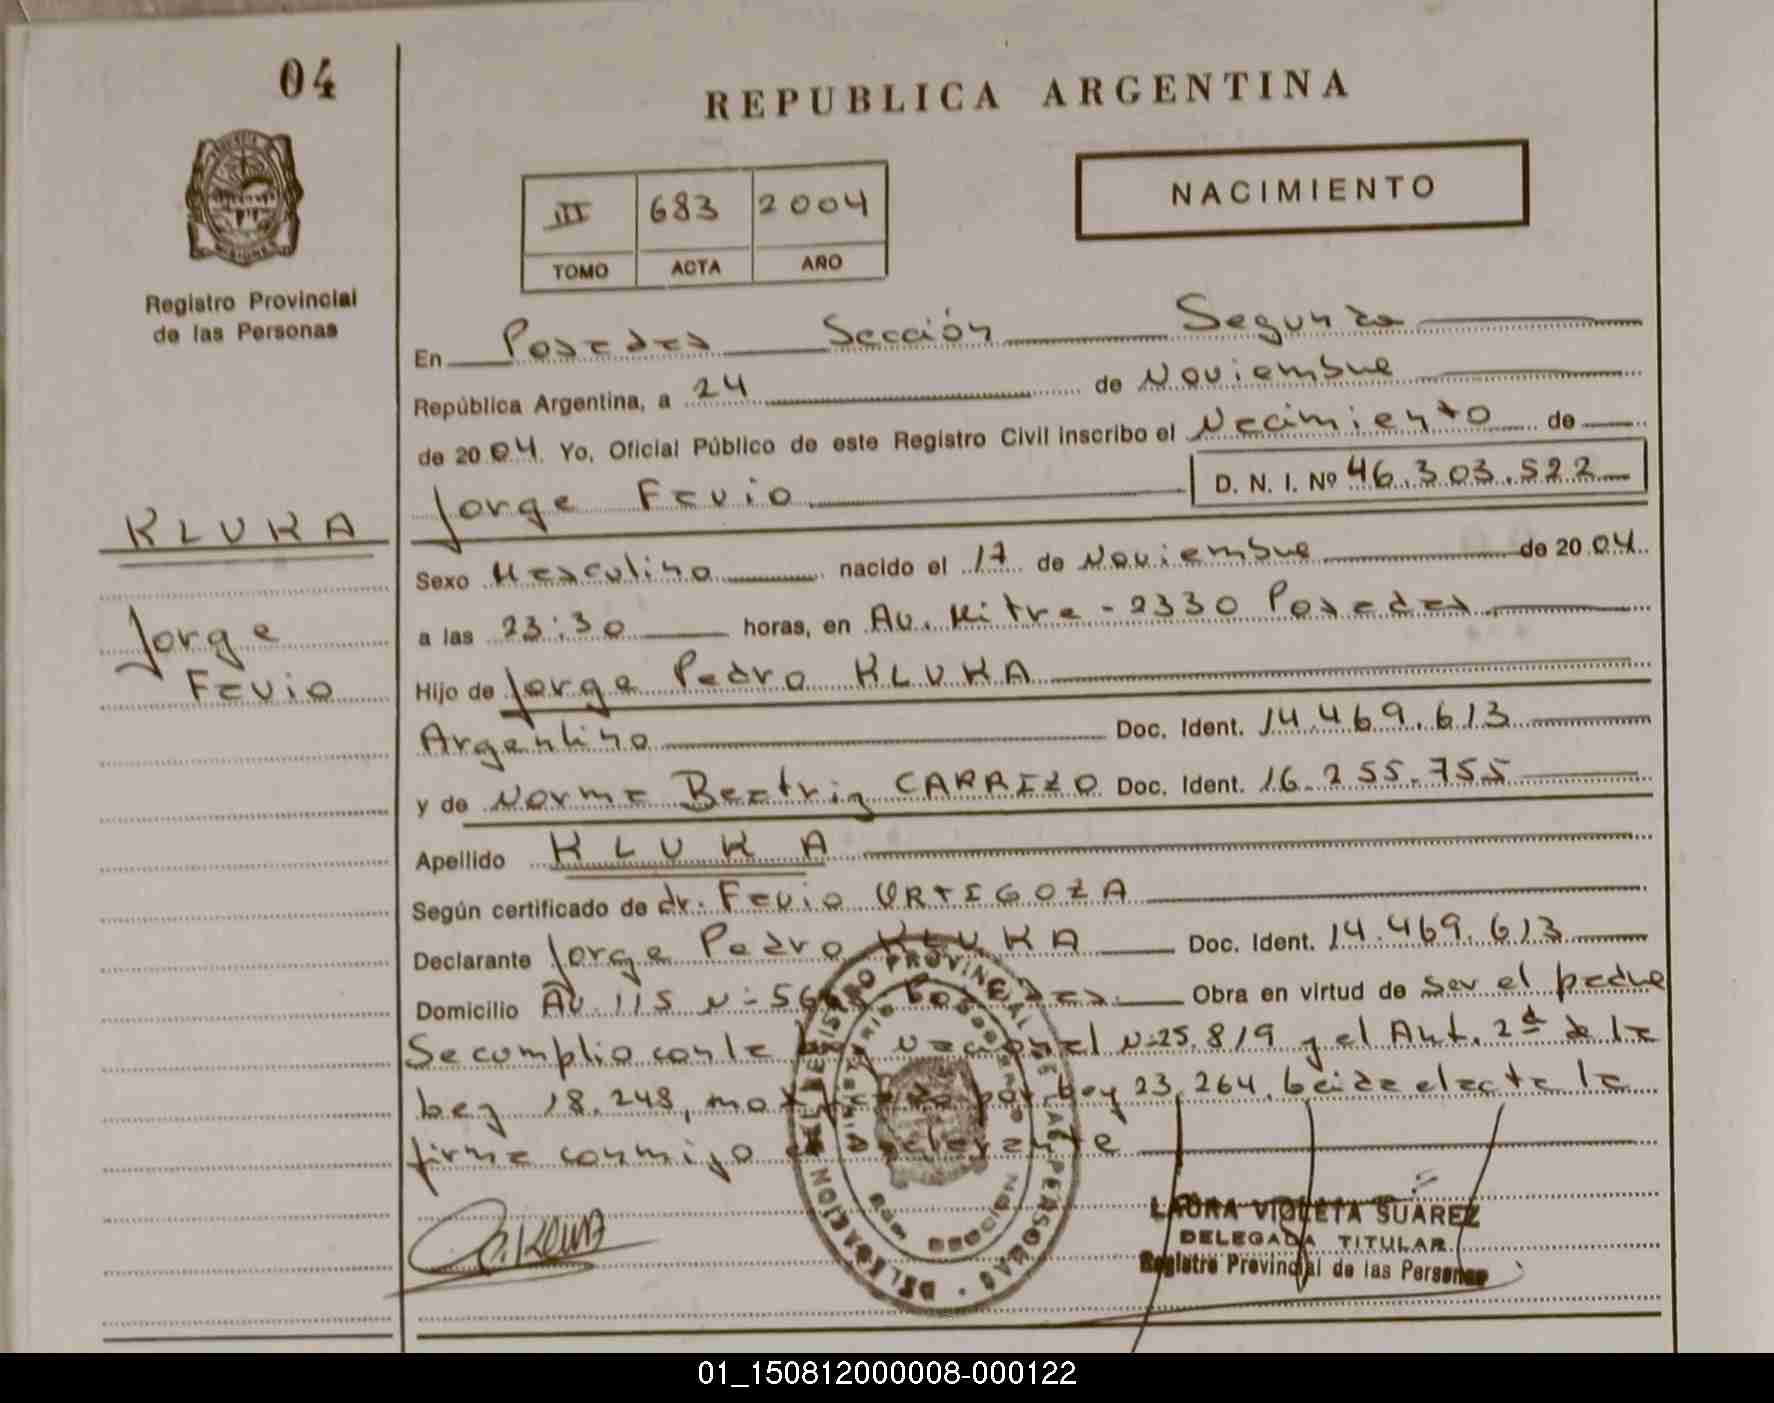 04
REPUBLICA ARGENTINA
NACIMIENTO
III 683 2004
TOMO ACTA AÑO
Registro Provincial
de las Personas
En Posadas Sección Segunda
República Argentina, a 24 de Noviembre
de 2004. Yo, Oficial Público de este Registro Civil inscribo el Nacimiento de
Jorge Favio D. N. I. Nº 46.303.522
KLUKA
Jorge
Favio
Sexo Masculino nacido el 17 de Noviembre de 2004.
a las 23:30 horas, en Av. Mitre - 2330 Posadas
Hijo de Jorge Pedro KLUKA
Argentino Doc. Ident. 14.469.613
y de Norma Beatriz CARRIZO Doc. Ident. 16.255.755
Apellido KLUKA
Según certificado de dr. Favio URTIGOZA
Declarante Jorge Pedro KLUKA Doc. Ident. 14.469.613
Domicilio Av. 115 N- Posadas Obra en virtud de ser el padre
Se cumplio con la Ley Nacional N-25.819 y el Art. 2d de la
Ley 18.248, modificado por Ley 23.264. Leida el acta la
firma conmigo el declarante
REGISTRO PROVINCIAL DE LAS PERSONAS
DELEGACION
LAURA VIOLETA SUAREZ
DELEGADA TITULAR
Registro Provincial de las Personas
01_150812000008-000122